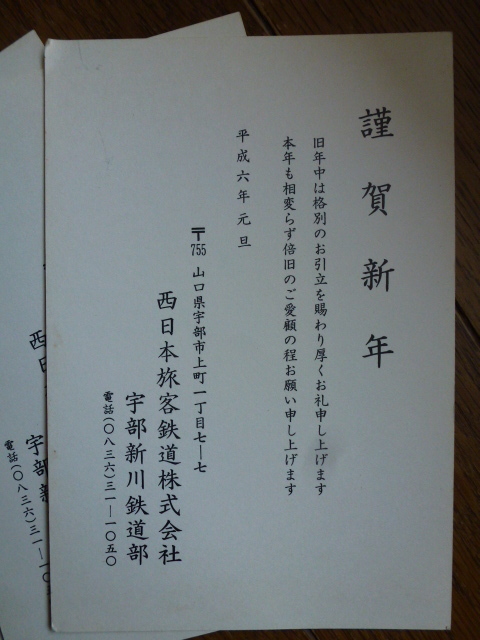 謹賀新年
旧年中は格別のお引立を賜わり厚くお礼申し上げます
本年も相変らず倍旧のご愛顧の程お願い申し上げます
平成六年元旦
〒755 山口県宇部市上町一丁目七―七
西日本旅客鉄道株式会社
宇部新川鉄道部
電話(〇八三六)三一―一〇五〇
西日
宇部新
電話(〇八三六)三一―一